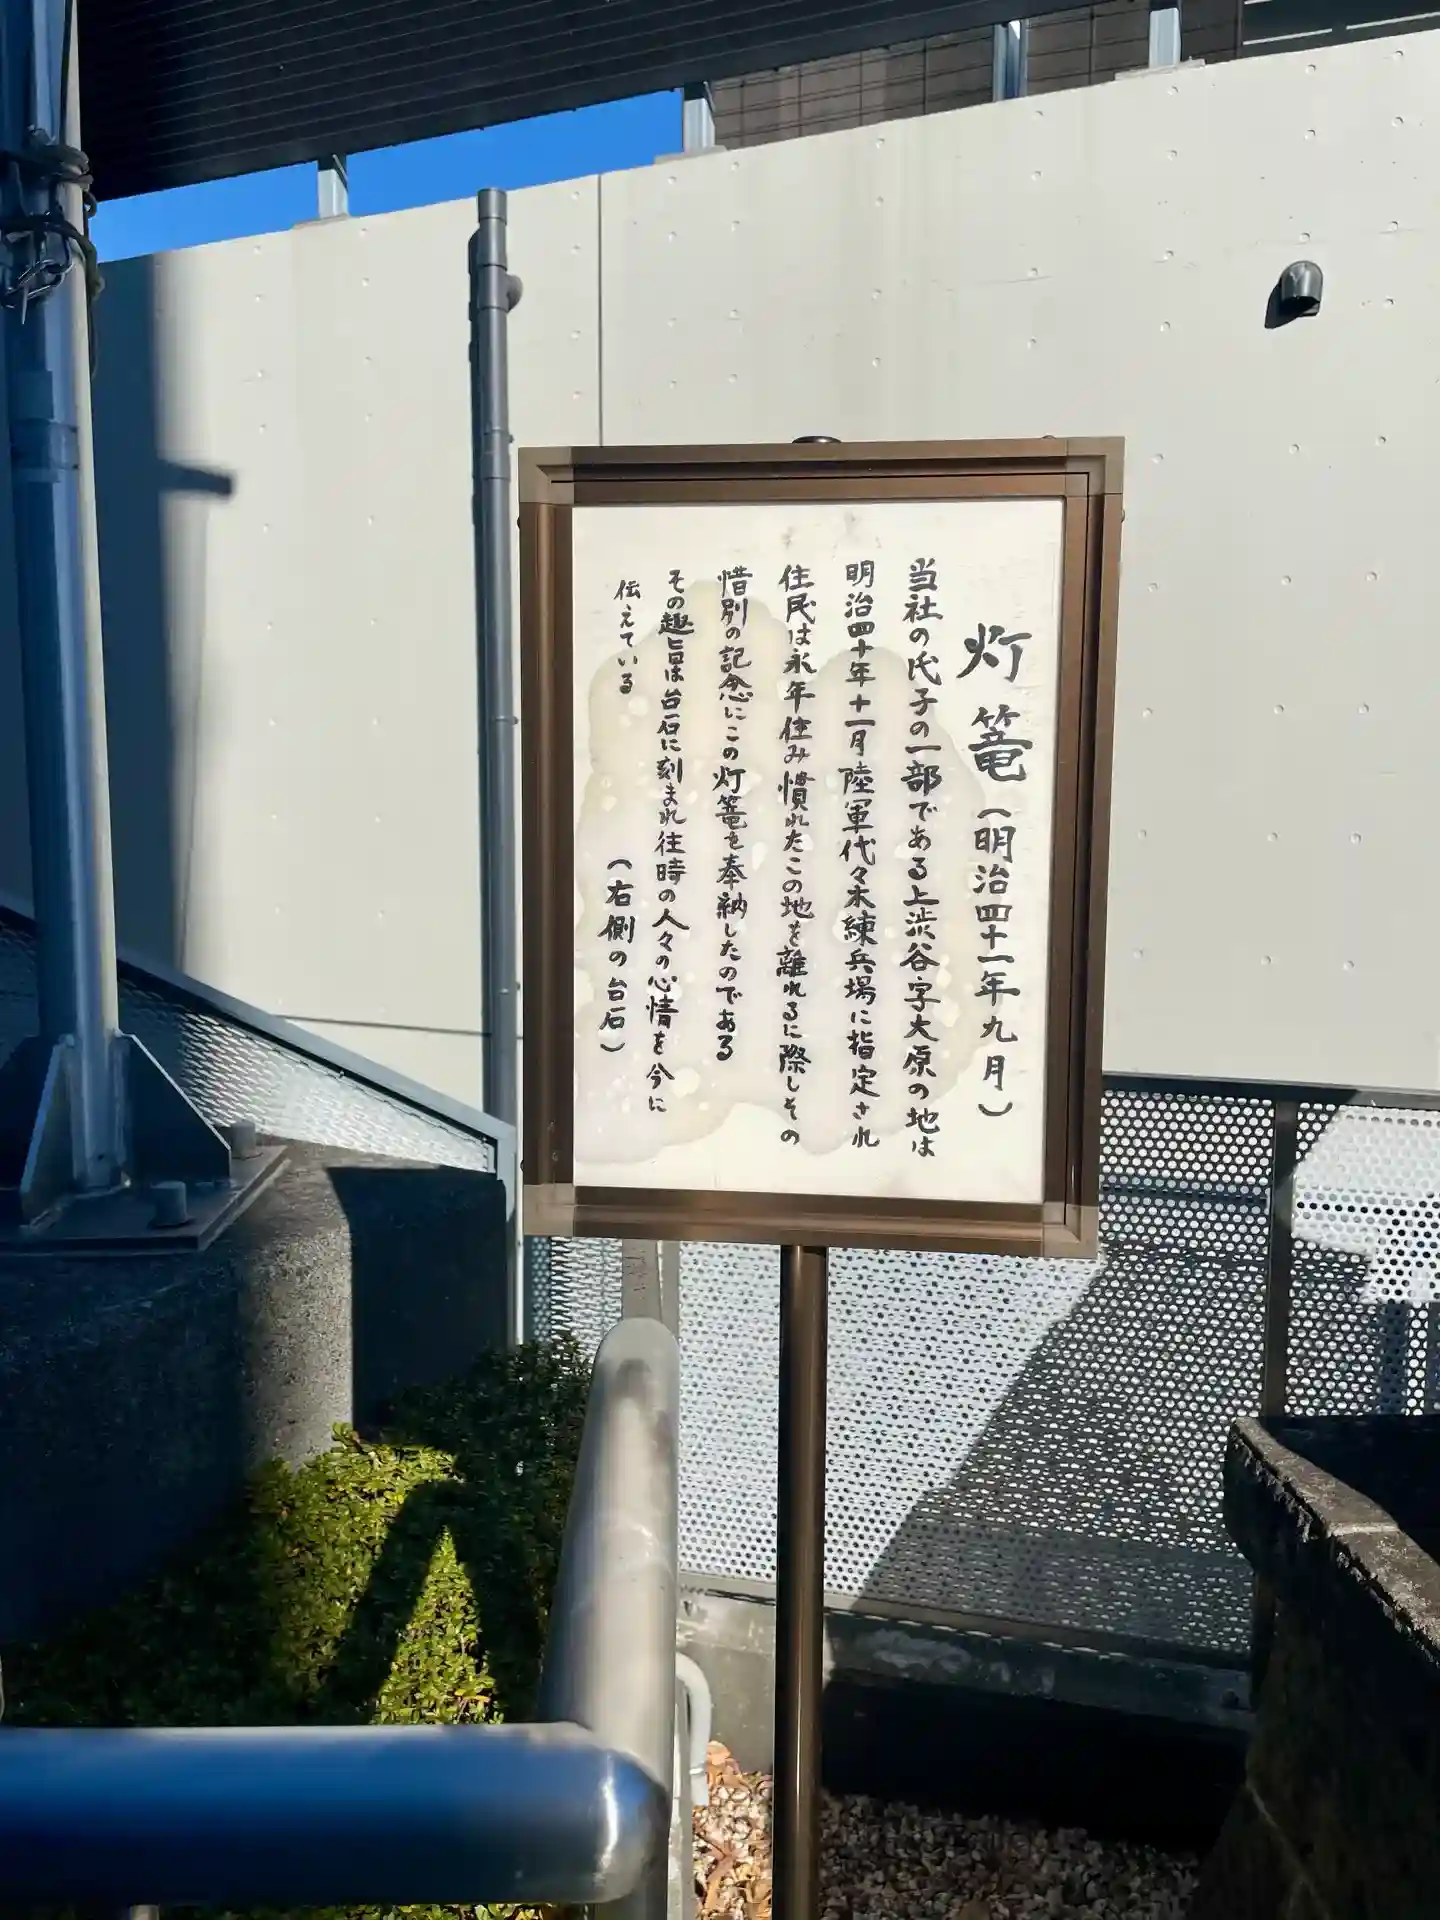 灯篭(明治四十一年九月)
当社の氏子の一部である上渋谷字大原の地は
明治四十年十一月陸軍代々木練兵場に指定され
住民は永年住み慣れたこの地を離れるに際しその
惜別の記念にこの灯篭を奉納したのである
その趣旨は台石に刻まれ往時の人々の心情を今に
伝えている
(右側の台石)